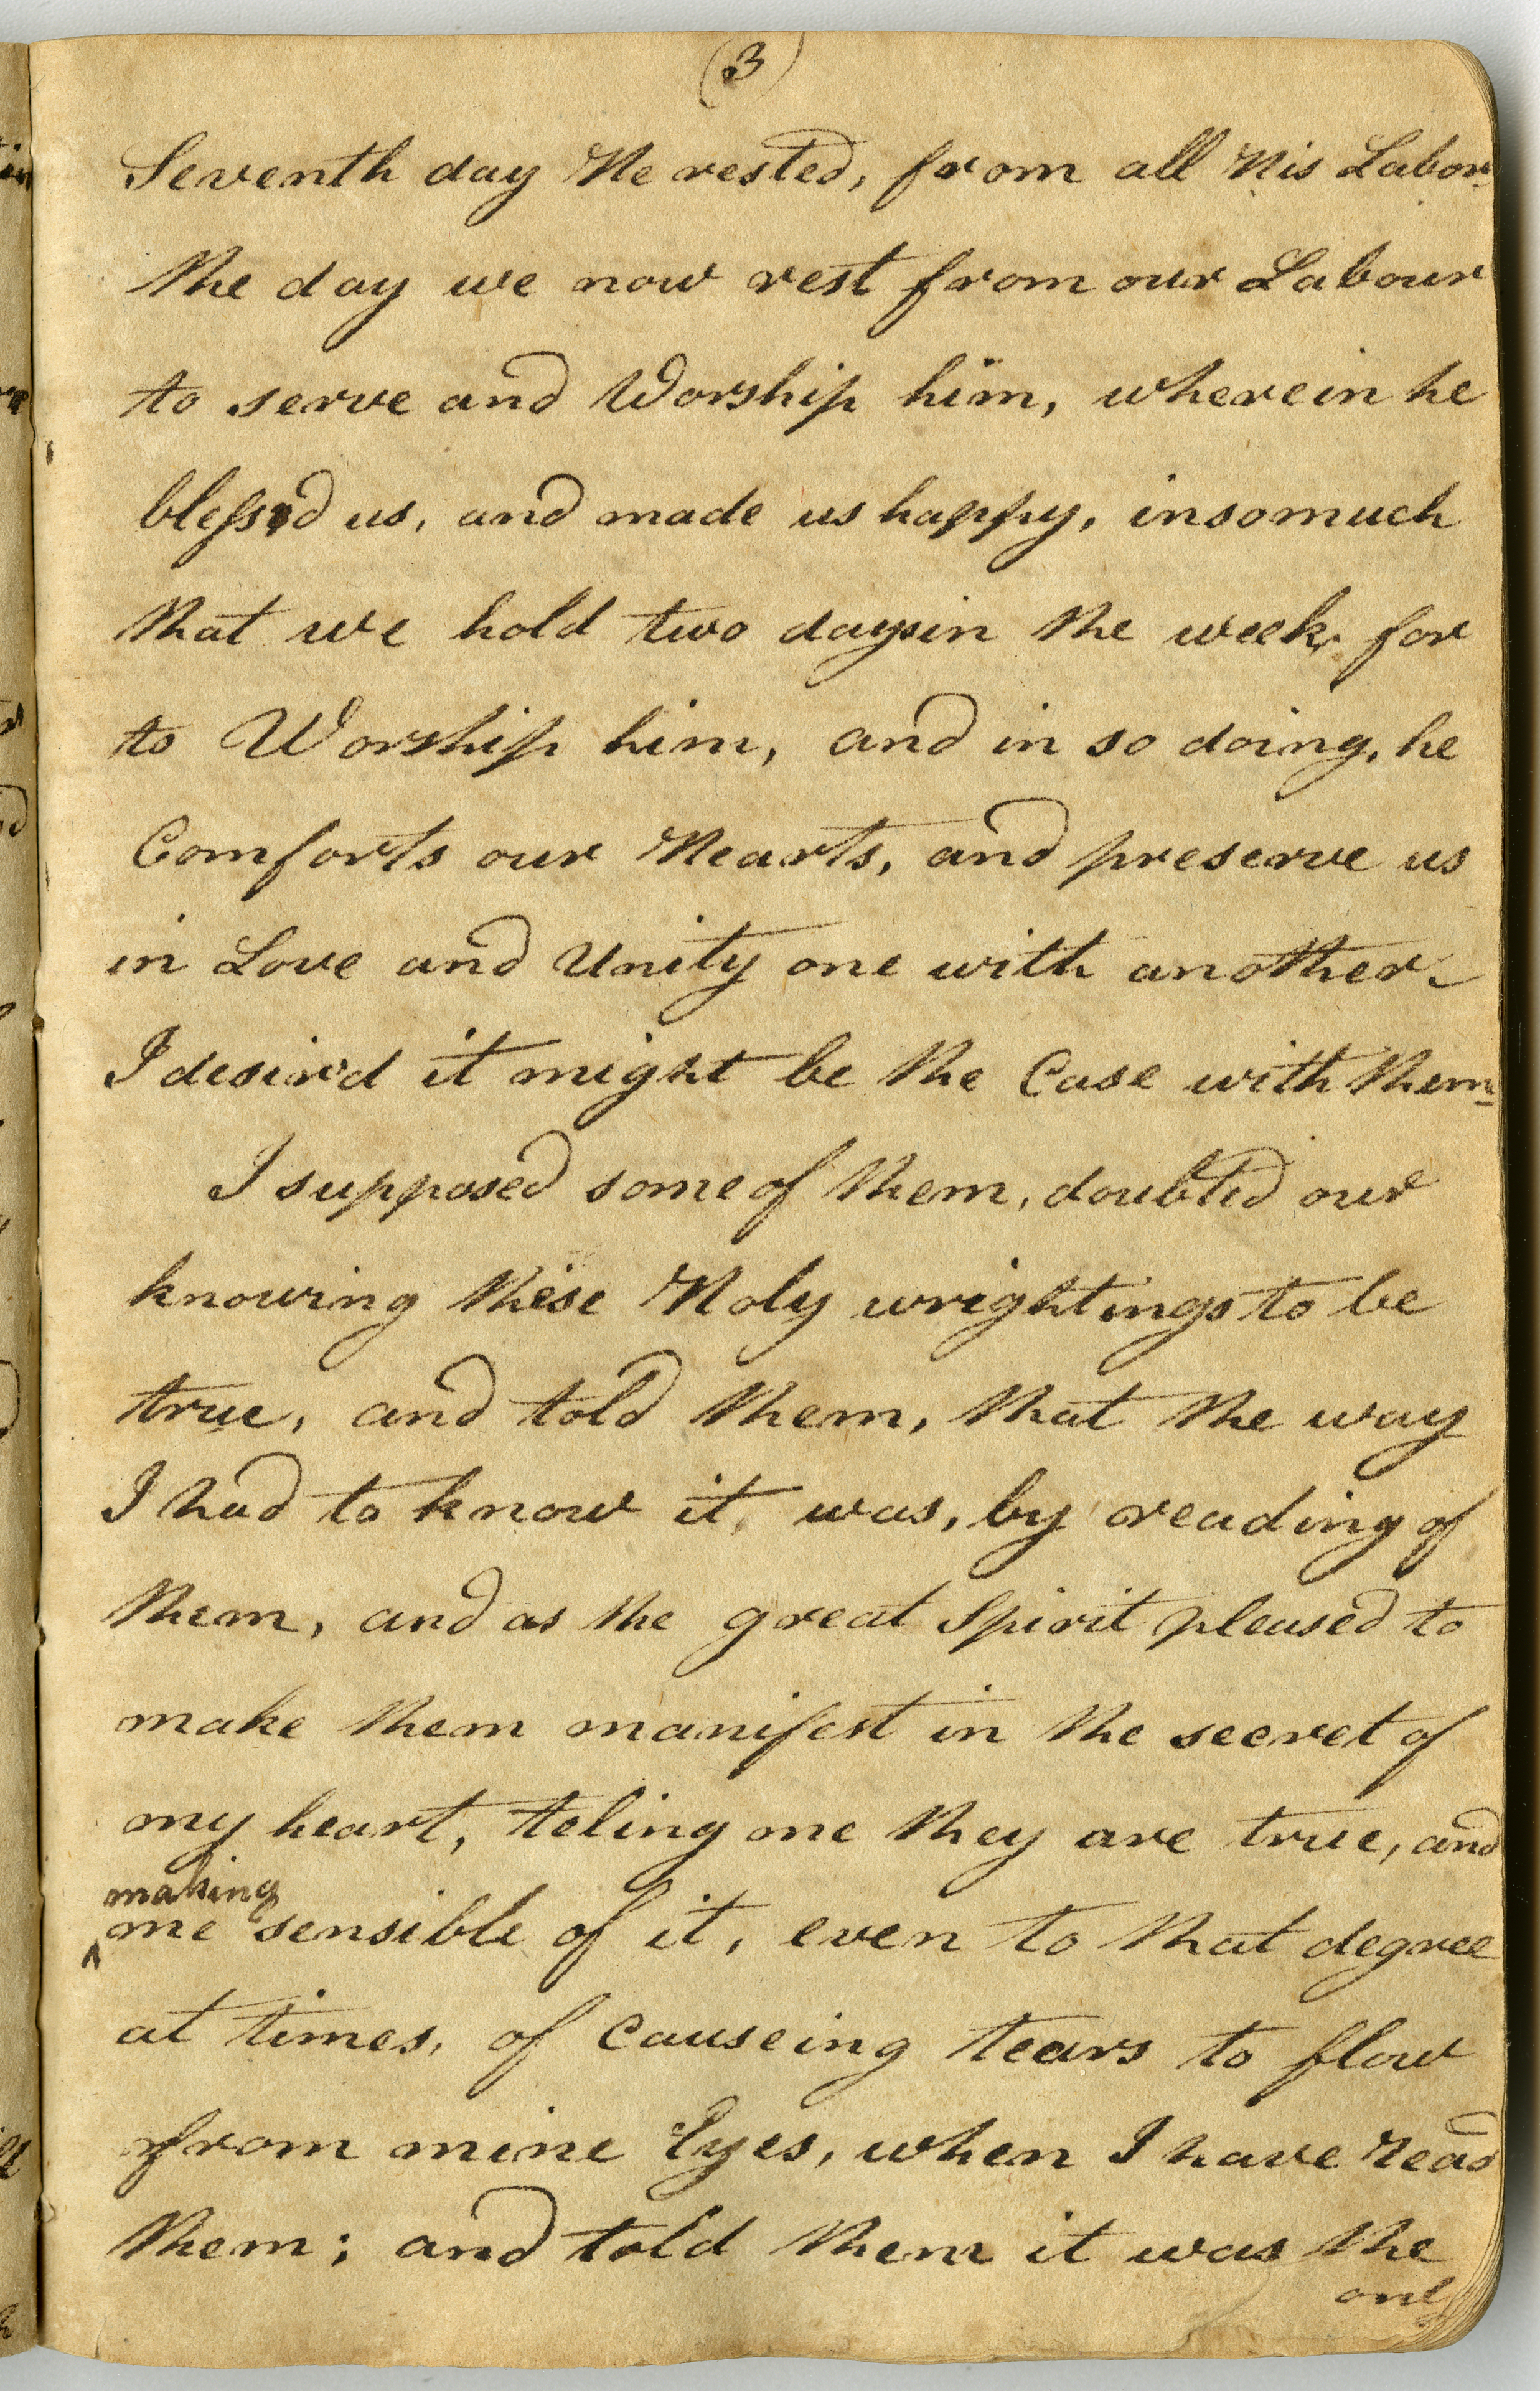 (3)
Seventh day He rested, from all His Labor
the day we now rest from our Labour
to serve and Worship him, wherein he
blessed us, and made us happy, insomuch
that we hold two days in the week, for
to Worship him, and in so doing, he
Comforts our Hearts, and preserve us
in Love and Unity one with another
I desir'd it might be the Case with them
I supposed some of them, doubted our
knowing these Holy wrightings to be
true, and told them, that the way
I had to know it, was, by reading of
them, and as the great Spirit pleased to
make them manifest in the secret of
my heart, teling me they are true, and
making
^me sensible of it, even to that degree
at times, of causeing tears to flow
from mine Eyes, when I have read
them; and told them it was the